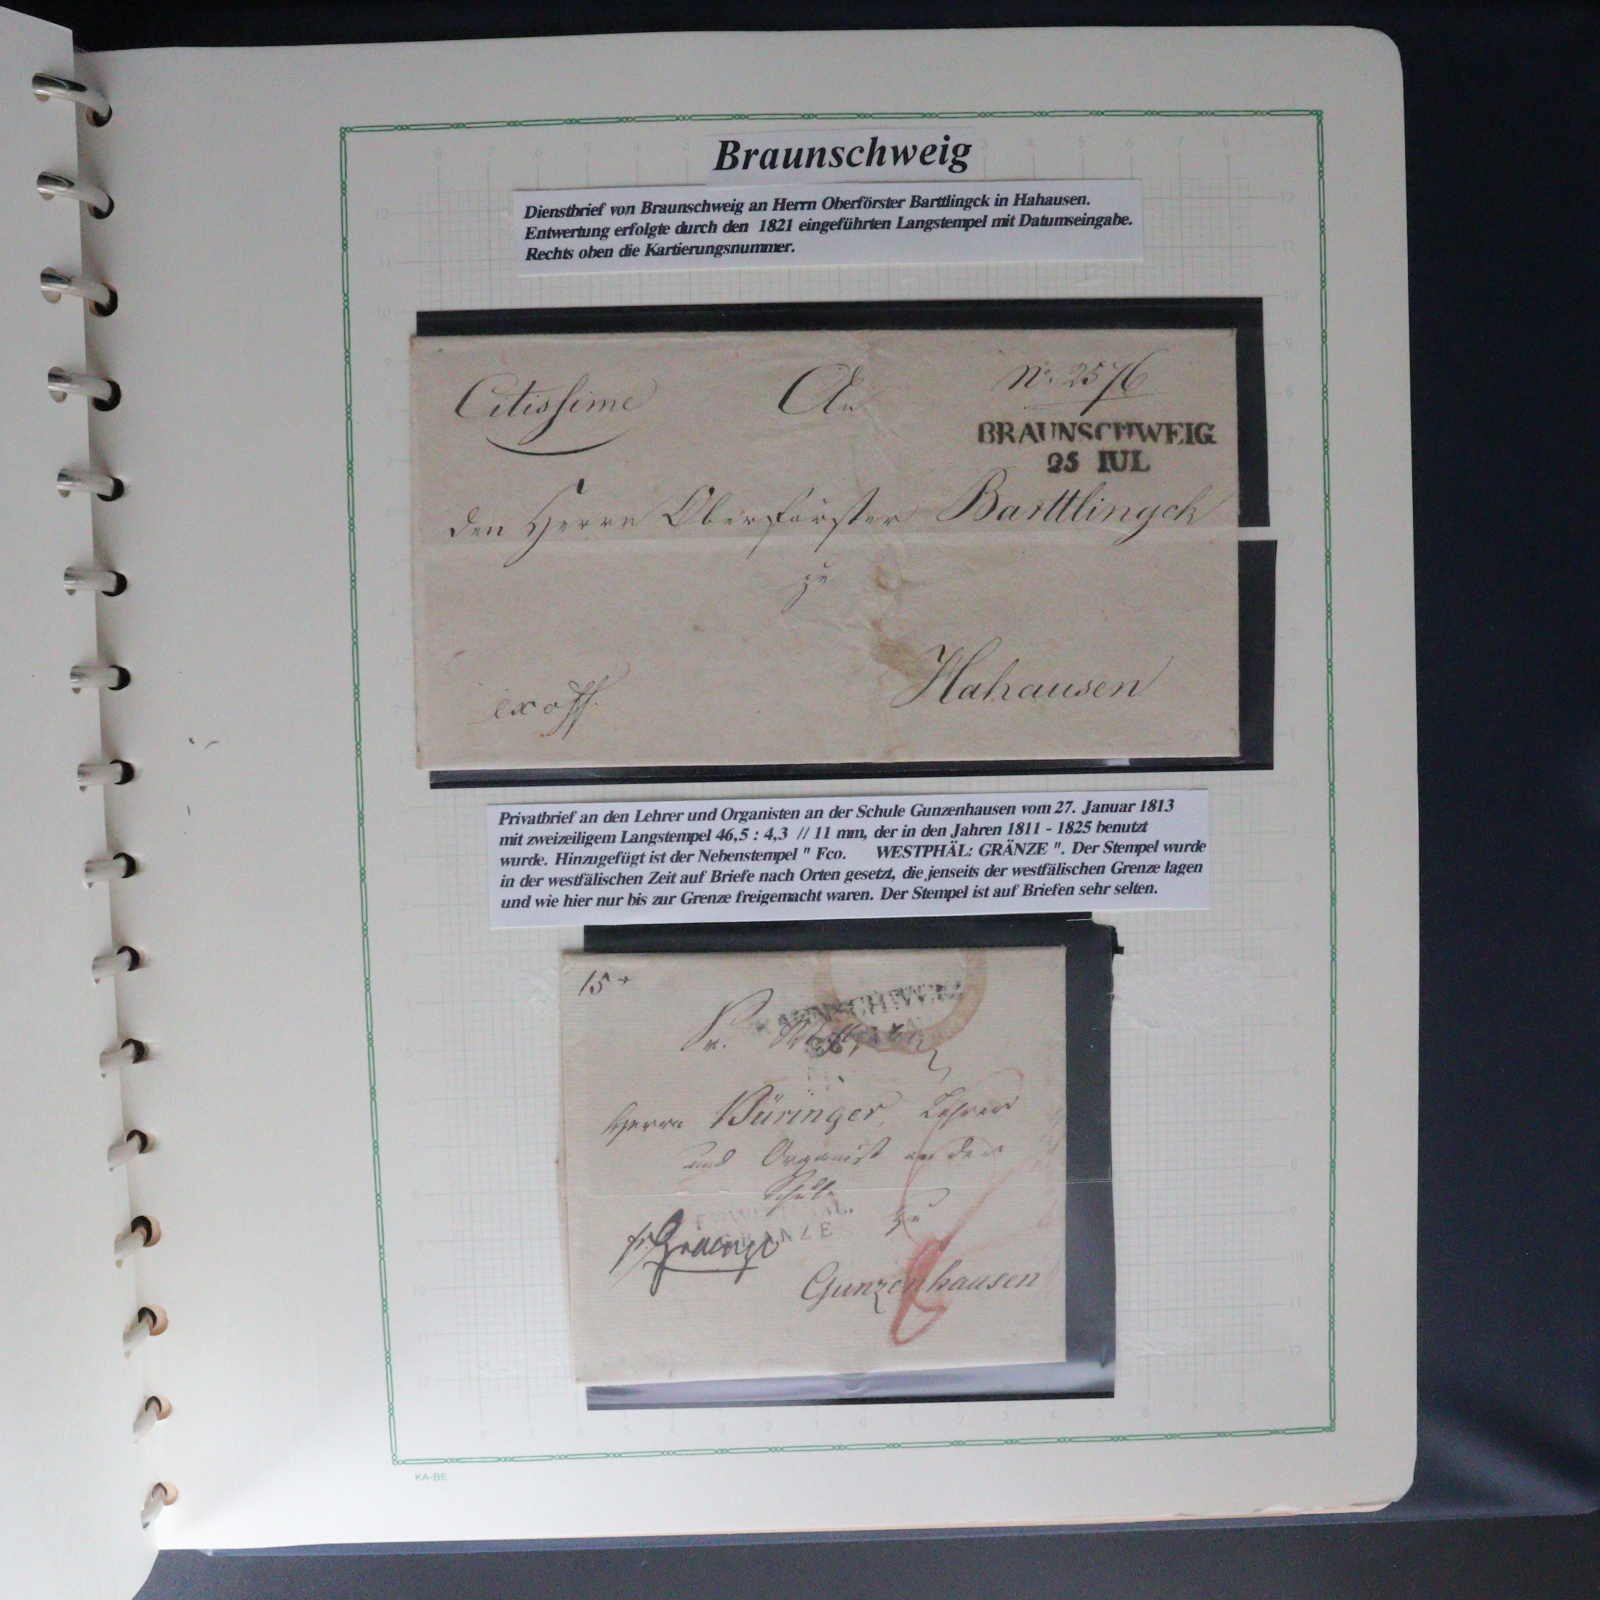 Braunschweig
Dienstbrief von Braunschweig an Herrn Oberförster Barttlingck in Hahausen.
Entwertung erfolgte durch den 1821 eingeführten Langstempel mit Datumseingabe.
Rechts oben die Kartierungsnummer.
Citissime An No. 2576
BRAUNSCHWEIG
25 IUL
den Herrn Oberförster Barttlingck
zu
Hahausen
ex off.
Privatbrief an den Lehrer und Organisten an der Schule Gunzenhausen vom 27. Januar 1813
mit zweizeiligem Langstempel 46,5 : 4,3 // 11 mm, der in den Jahren 1811 - 1825 benutzt
wurde. Hinzugefügt ist der Nebenstempel " Fco. WESTPHÄL: GRÄNZE ". Der Stempel wurde
in der westfälischen Zeit auf Briefe nach Orten gesetzt, die jenseits der westfälischen Grenze lagen
und wie hier nur bis zur Grenze freigemacht waren. Der Stempel ist auf Briefen sehr selten.
15
BRAUNSCHWEIG
Herrn Büringer, Lehrer
und Organist an der
Schule
zu
Gunzenhausen
KA-BE